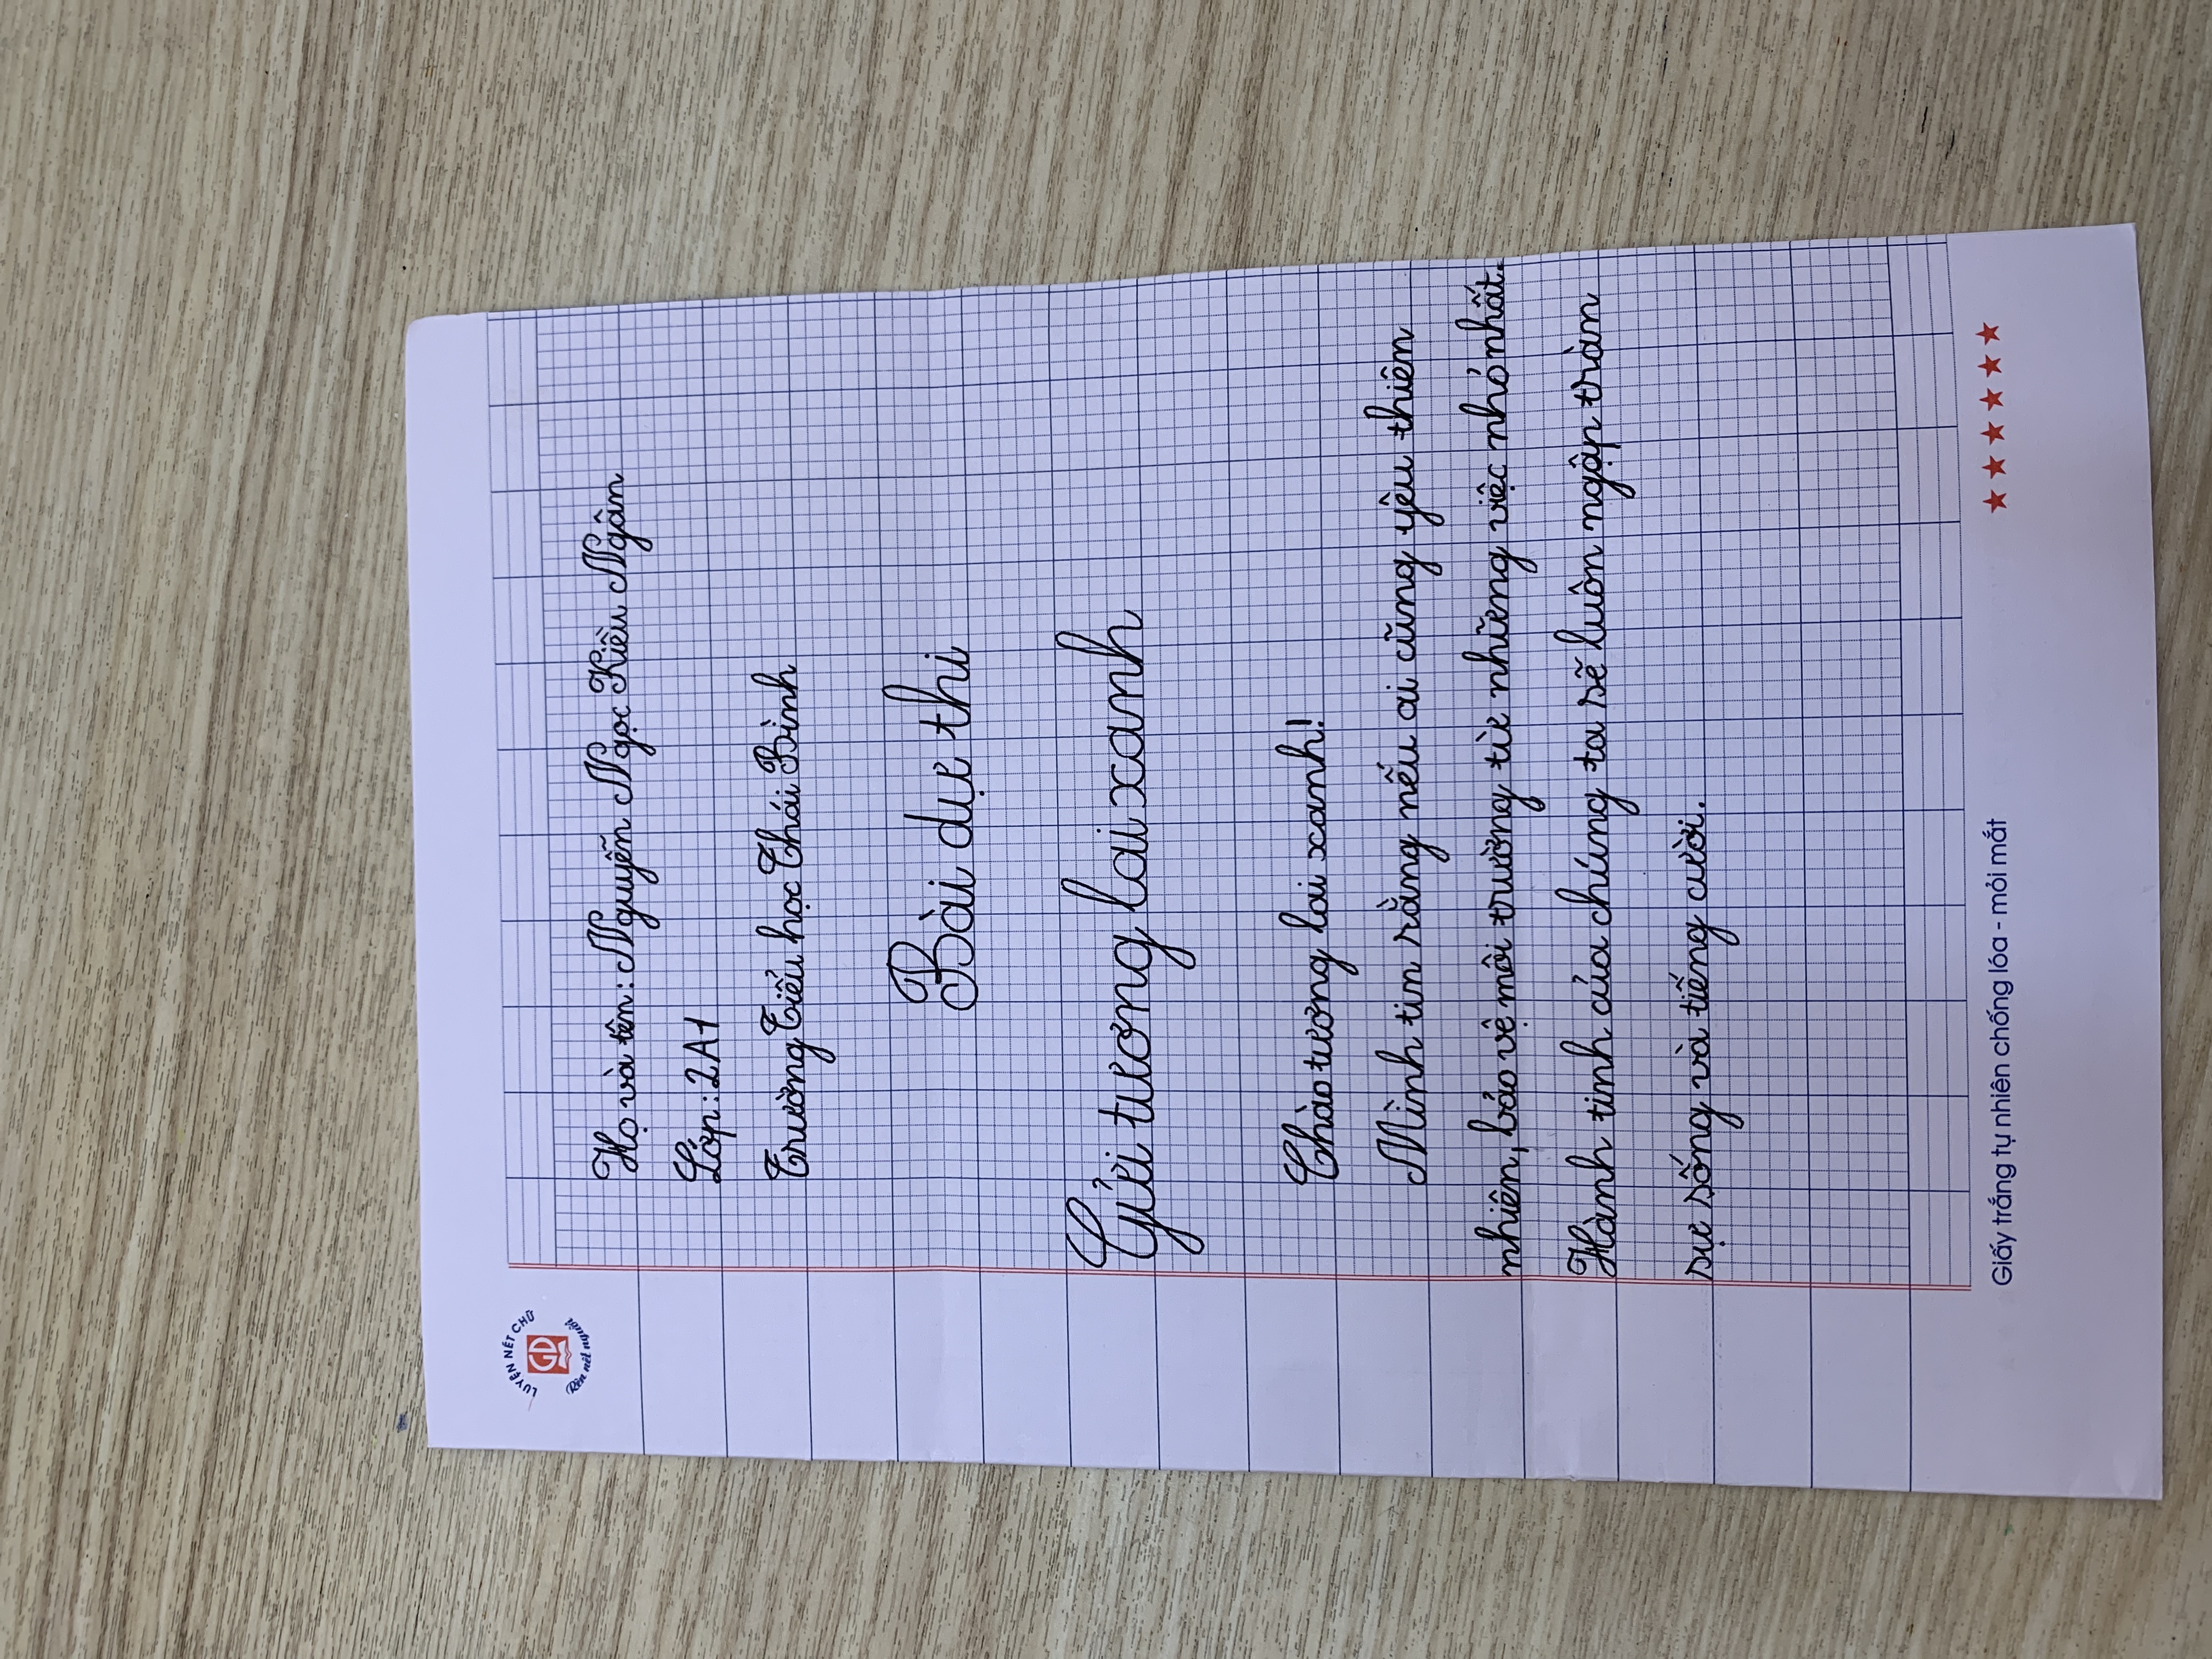 LUYỆN NÉT CHỮ
GD
Rèn nết người
Họ và tên: Nguyễn Ngọc Kiều Ngân
Lớp: 2A1
Trường Tiểu học Thái Bình
Bài dự thi
Gửi tương lai xanh
Chào tương lai xanh!
Mình tin rằng nếu ai cũng yêu thiên
nhiên, bảo vệ môi trường từ những việc nhỏ nhất.
Hành tinh của chúng ta sẽ luôn ngập tràn
sự sống và tiếng cười.
Giấy trắng tự nhiên chống lóa - mỏi mắt